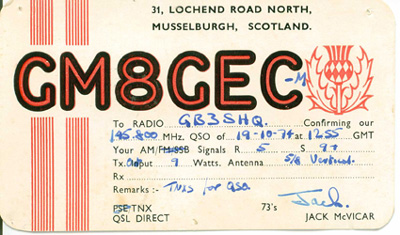 31, LOCHEND ROAD NORTH,
MUSSELBURGH, SCOTLAND.
GM8GEC-M
To RADIO GB3SHQ. Confirming our
145.800 MHz. QSO of 19-10-74 at 1255 GMT
Your AM/FM/SSB Signals R 5 S 9+
Tx. Output 9 Watts. Antenna 5/8 Vertical.
Rx
Remarks :- Tnks for QSO
PSE TNX 73's Jack.
QSL DIRECT JACK McVICAR